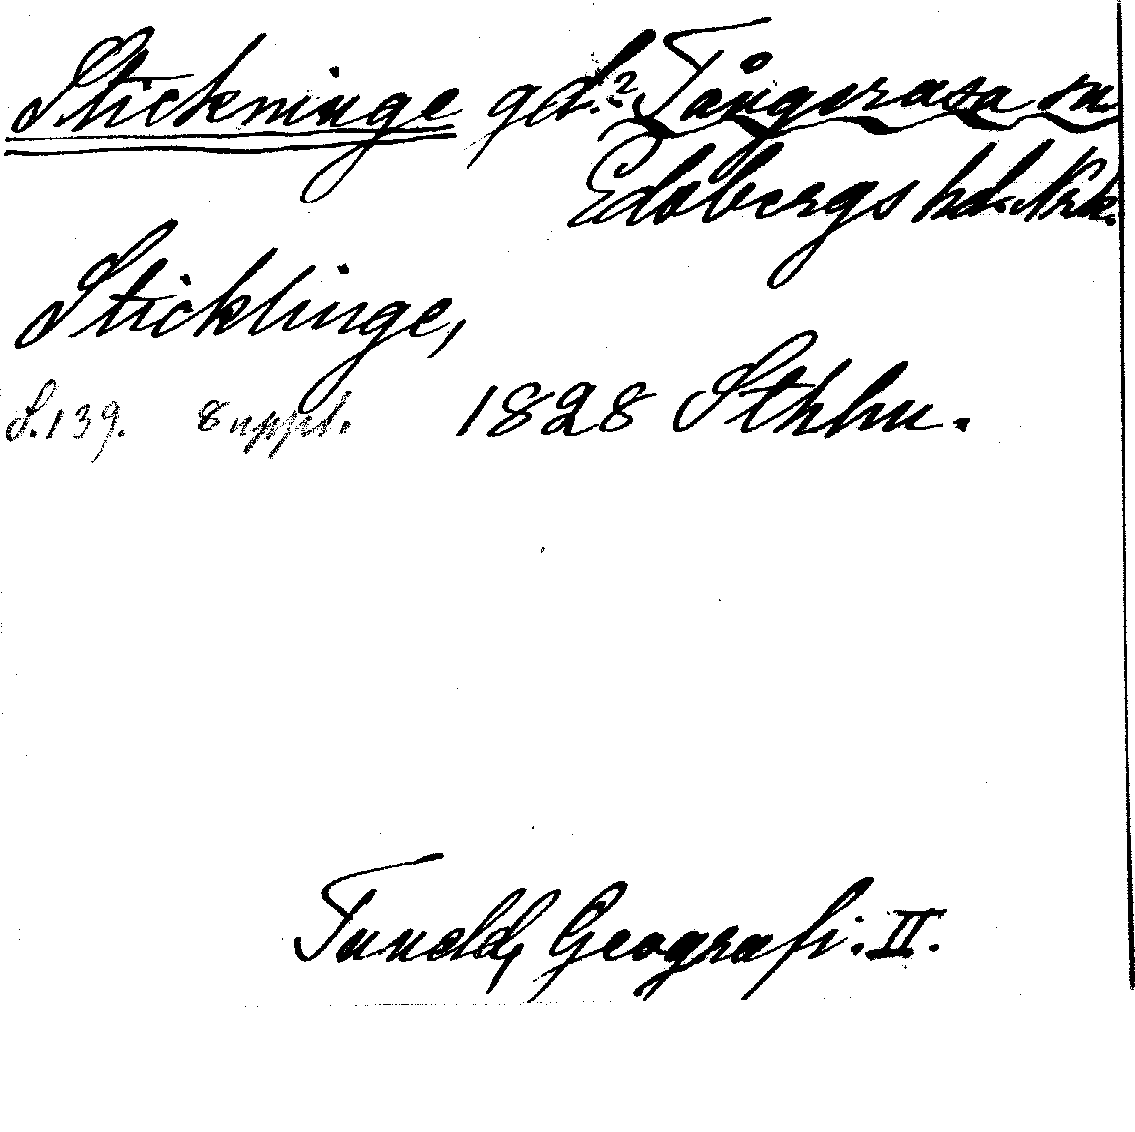 Stickninge gd.? Tångeråsa sn
Edsbergs hd. Nrk.
Sticklinge,
S. 139. 8 uppl. 1828 Sthlm.
Tuneld, Geografi. II.